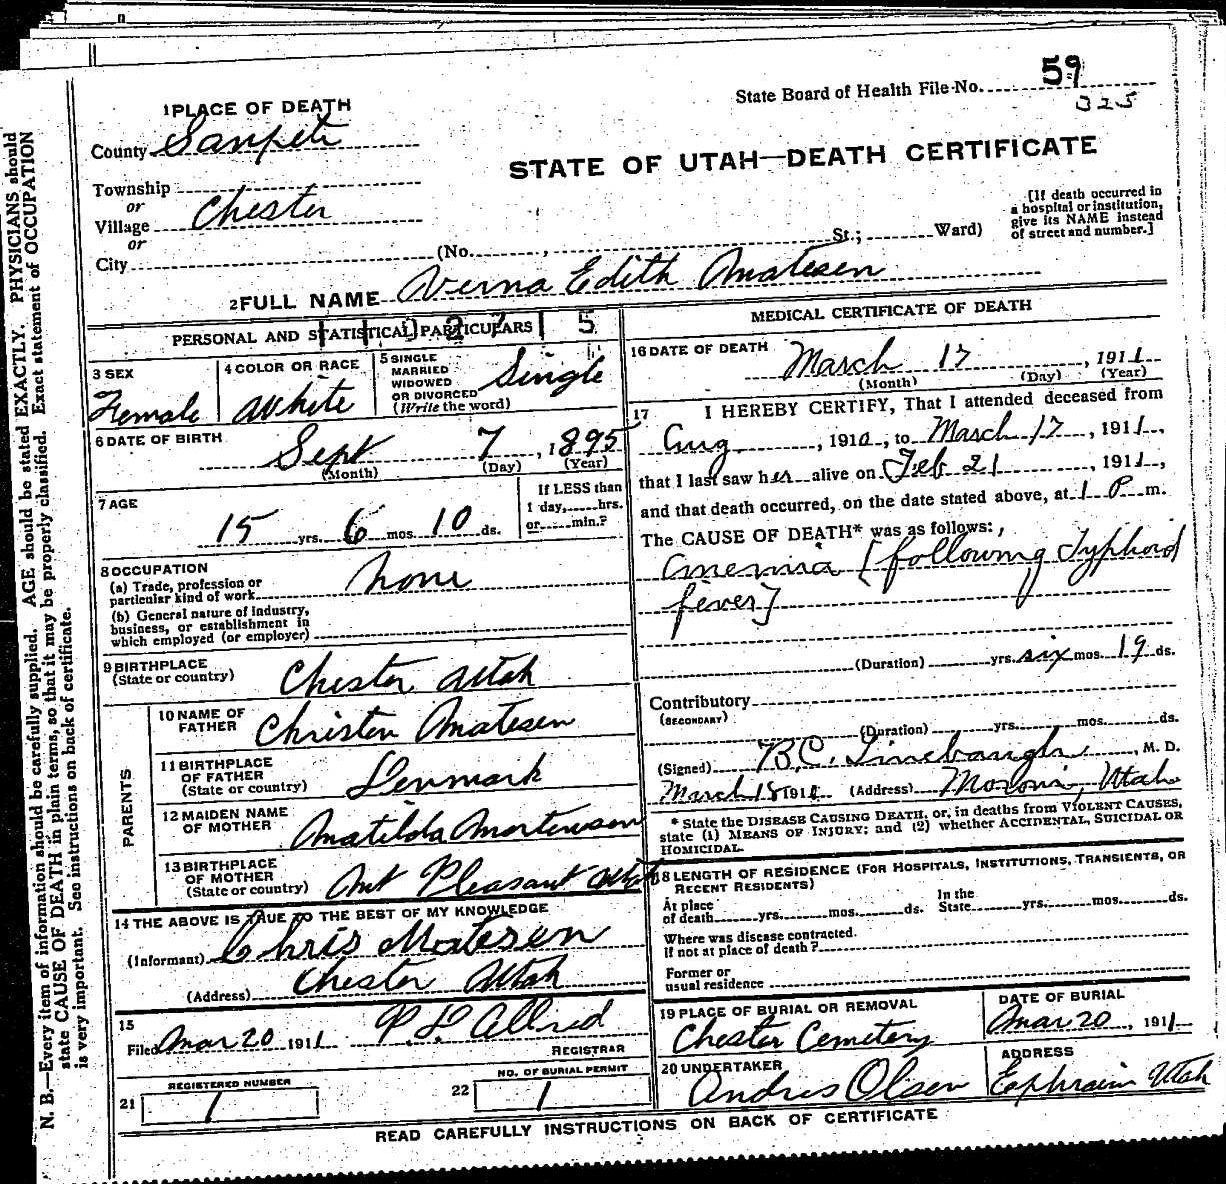 State Board of Health File No. 59
325
1 PLACE OF DEATH
County Sanpete
STATE OF UTAH—DEATH CERTIFICATE
Township
or
Village Chester
or
City (No. , St.; Ward)
[If death occurred in
a hospital or institution,
give its NAME instead
of street and number.]
2 FULL NAME Verna Edith Matesen
PERSONAL AND STATISTICAL PARTICULARS
3 SEX
Female
4 COLOR OR RACE
White
5 SINGLE
MARRIED
WIDOWED
OR DIVORCED
(Write the word)
Single
6 DATE OF BIRTH
Sept 7, 1895
(Month) (Day) (Year)
7 AGE
15 yrs. 6 mos. 10 ds.
If LESS than
1 day, hrs.
or min.?
8 OCCUPATION
(a) Trade, profession or
particular kind of work none
(b) General nature of Industry,
business, or establishment in
which employed (or employer)
9 BIRTHPLACE
(State or country) Chester Utah
PARENTS
10 NAME OF
FATHER Christen Matesen
11 BIRTHPLACE
OF FATHER
(State or country) Denmark
12 MAIDEN NAME
OF MOTHER Matilda Mortensen
13 BIRTHPLACE
OF MOTHER
(State or country) Mt Pleasant Utah
14 THE ABOVE IS TRUE TO THE BEST OF MY KNOWLEDGE
(Informant) Chris Matesen
(Address) Chester Utah
15
Filed Mar 20 1911 P. L. Allred
REGISTRAR
REGISTERED NUMBER
21 1
NO. OF BURIAL PERMIT
22 1
MEDICAL CERTIFICATE OF DEATH
16 DATE OF DEATH
March 17, 1911
(Month) (Day) (Year)
17 I HEREBY CERTIFY, That I attended deceased from
Aug, 1910, to March 17, 1911,
that I last saw her alive on Feb 21, 1911,
and that death occurred, on the date stated above, at 1 P m.
The CAUSE OF DEATH* was as follows:
Anemia [following Typhoid
fever]
(Duration) yrs. six mos. 19 ds.
Contributory
(SECONDARY)
(Duration) yrs. mos. ds.
(Signed) B.C. Linebaugh, M. D.
March 18 1911 (Address) Moroni, Utah
* State the DISEASE CAUSING DEATH, or, in deaths from VIOLENT CAUSES,
state (1) MEANS OF INJURY; and (2) whether ACCIDENTAL, SUICIDAL OR
HOMICIDAL.
18 LENGTH OF RESIDENCE (FOR HOSPITALS, INSTITUTIONS, TRANSIENTS, OR
RECENT RESIDENTS)
At place
of death yrs. mos. ds.
In the
State yrs. mos. ds.
Where was disease contracted.
if not at place of death?
Former or
usual residence
19 PLACE OF BURIAL OR REMOVAL
Chester Cemetery
DATE OF BURIAL
Mar 20, 1911
20 UNDERTAKER
Andres Olsen
ADDRESS
Ephraim Utah
READ CAREFULLY INSTRUCTIONS ON BACK OF CERTIFICATE
N. B.—Every item of information should be carefully supplied. AGE should be stated EXACTLY. PHYSICIANS should
state CAUSE OF DEATH in plain terms, so that it may be properly classified. Exact statement of OCCUPATION
is very important. See instructions on back of certificate.